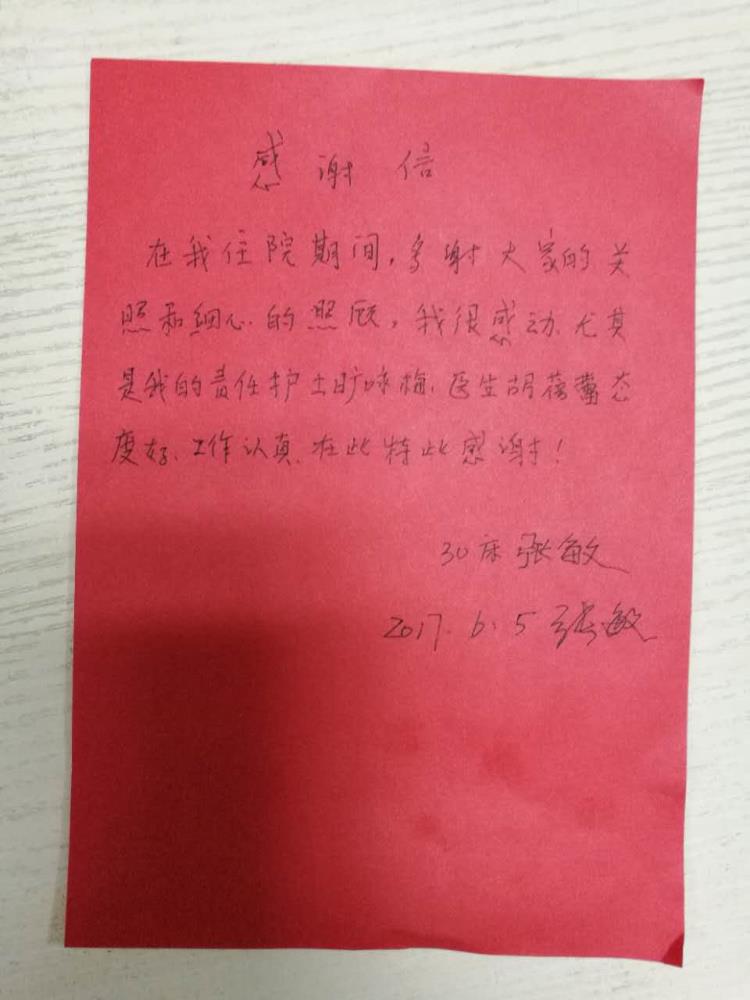 感谢信
在我住院期间，多谢大家的关
照和细心的照顾，我很感动、尤其
是我的责任护士旷咏梅、医生胡蓓蕾态
度好、工作认真、在此特此感谢！
30床张敏
2017.6.5 张敏